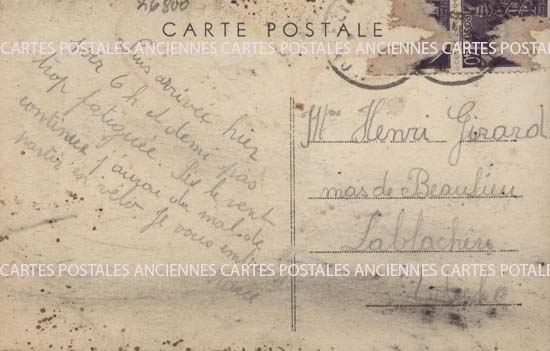 26800
CARTE POSTALE
CARTES POSTALES ANCIENNES CARTES POSTALES ANCIENNES CARTES POSTALES ANCIENNES CARTES POTALES
suis arrivée hier
6 h et demi pas
trop fatiguée. Si le vent
continue j'aurai du mal de
partir en vélo. Je vous
Mme Henri Girard
mas de Beaulieu
Lablachère
CARTES POSTALES ANCIENNES CARTES POSTALES ANCIENNES CARTES POSTALES ANCIENNES CARTES POTALES
Ardèche